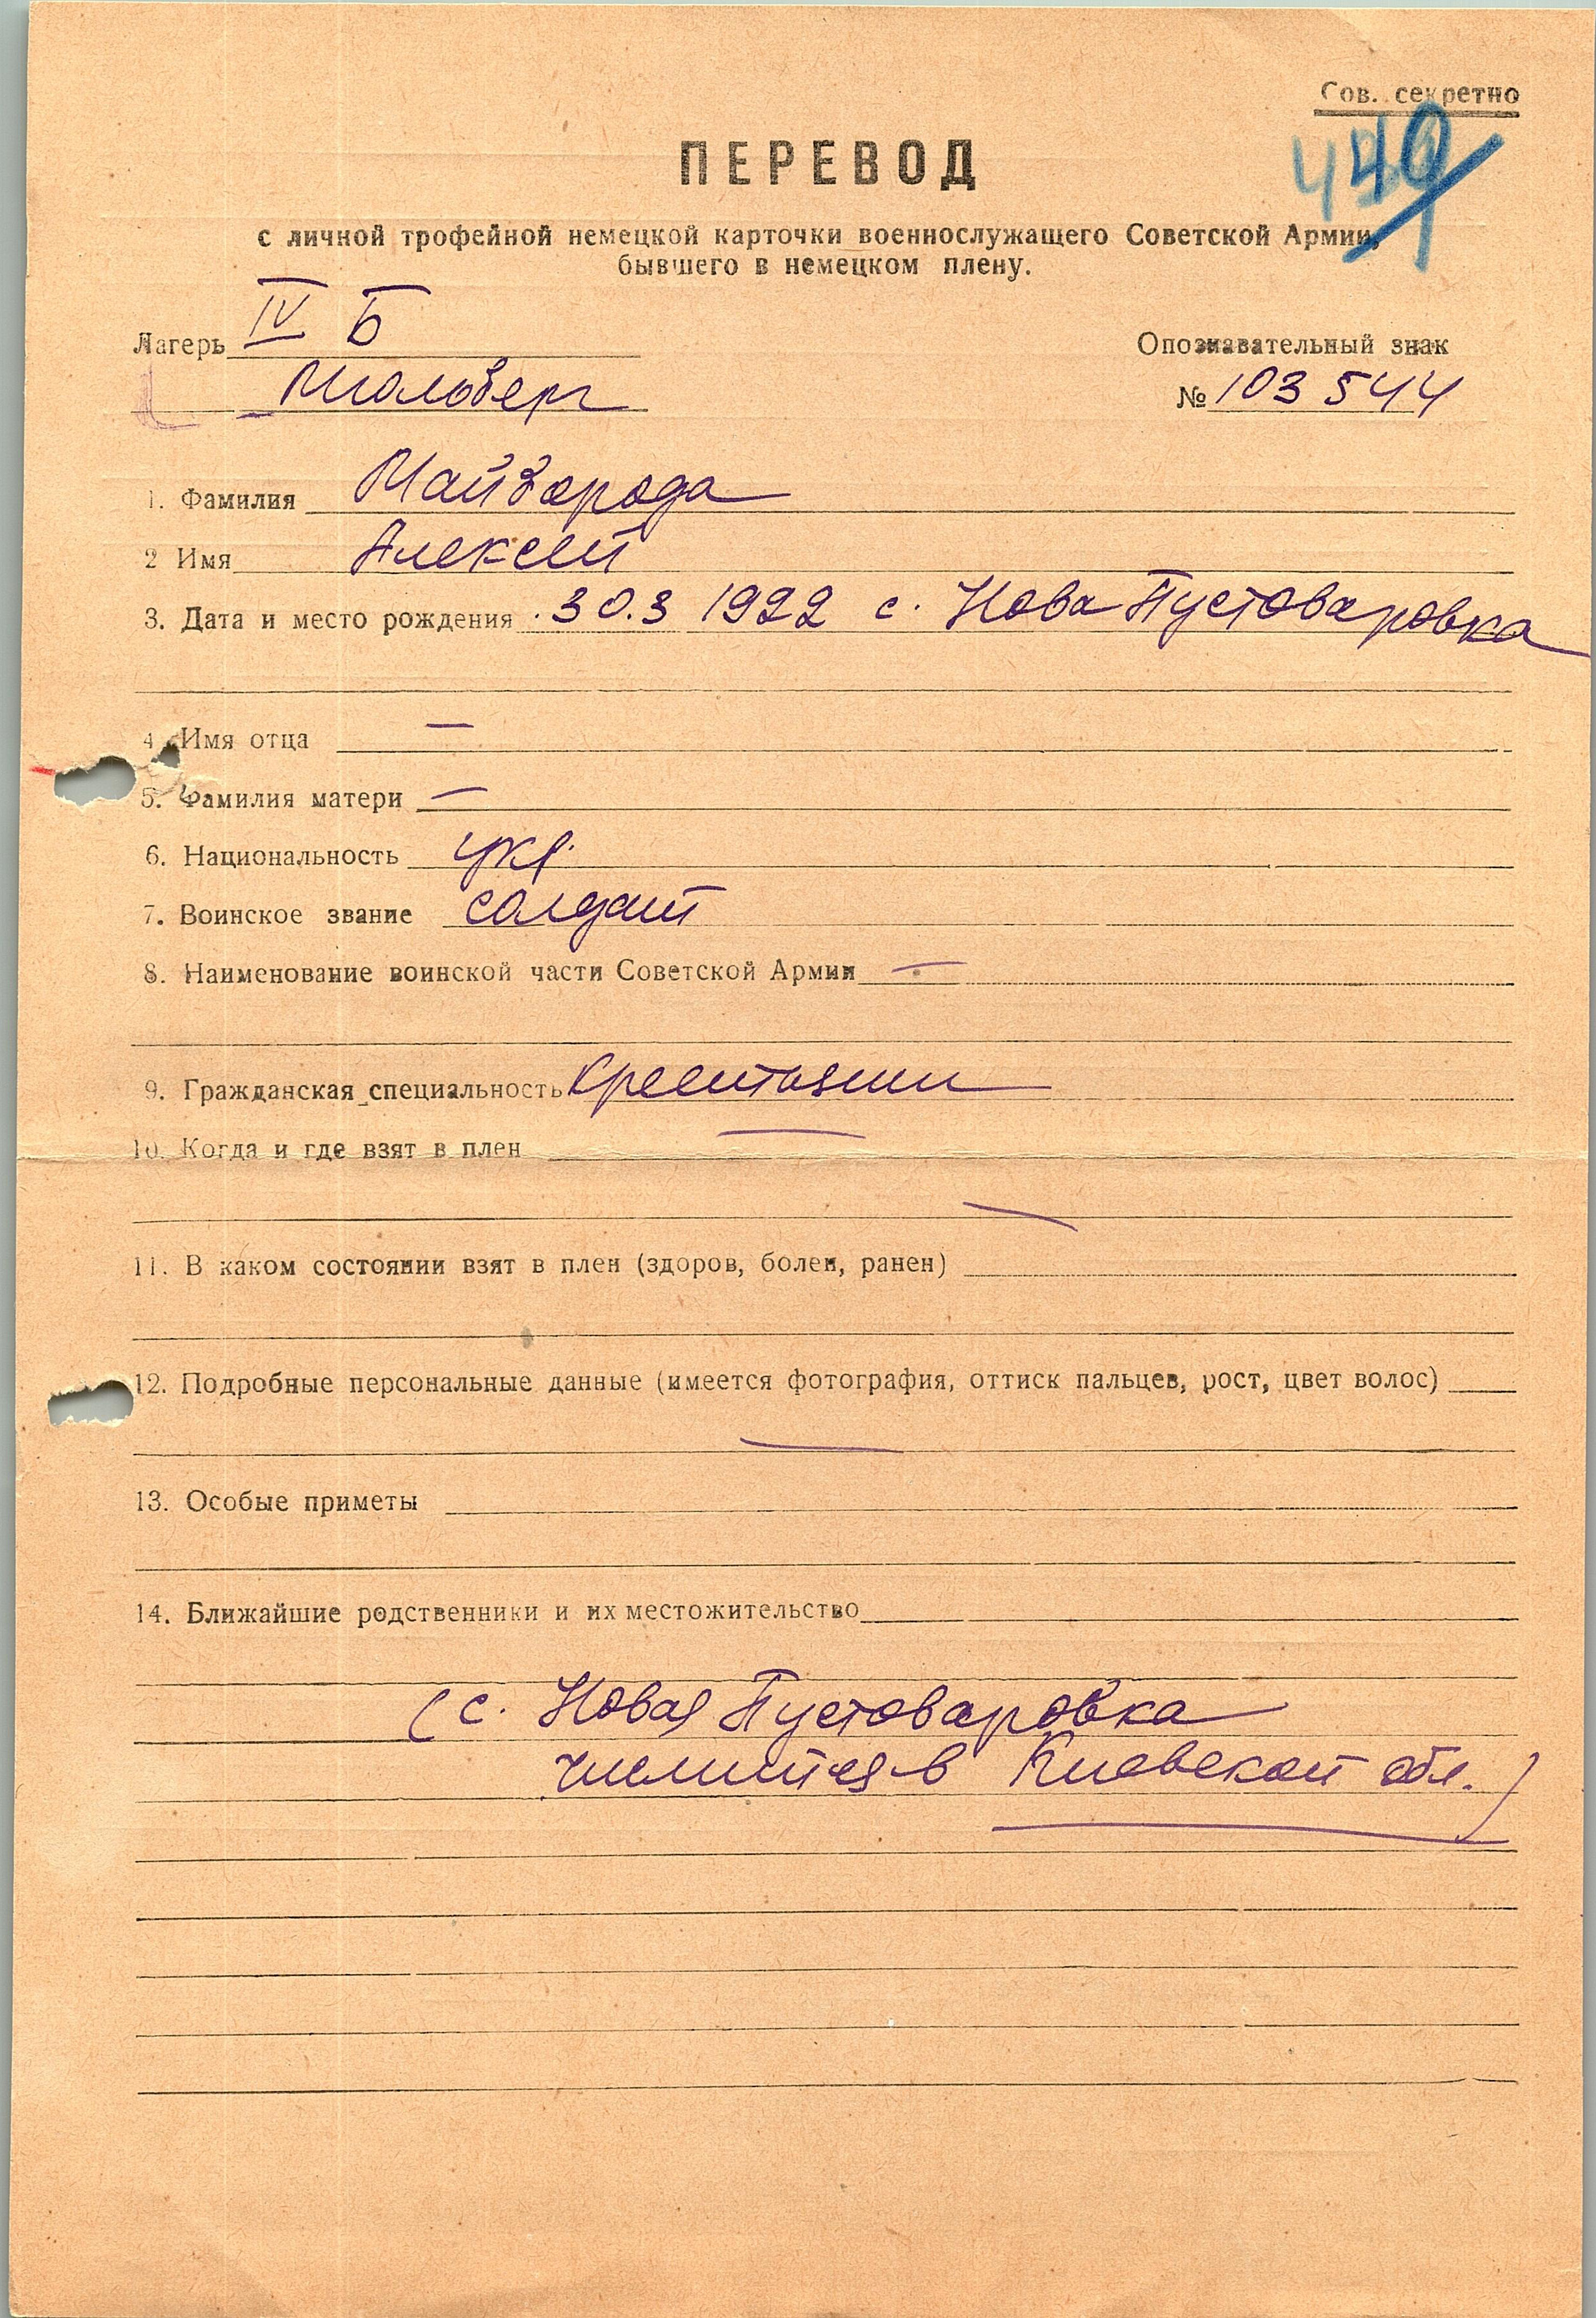 Сов. секретно
ПЕРЕВОД
с личной трофейной немецкой карточки военнослужащего Советской Армии,
бывшего в немецком плену.
Лагерь IV Б
Мюльберг
Опознавательный знак
№ 103544
1. Фамилия Майборода
2 Имя Алексей
3. Дата и место рождения 30.3 1922 с. Нова Пустоваровка
4. Имя отца —
5. Фамилия матери —
6. Национальность укр.
7. Воинское звание солдат
8. Наименование воинской части Советской Армии —
9. Гражданская специальность крестьянин
10. Когда и где взят в плен —
11. В каком состоянии взят в плен (здоров, болен, ранен) —
12. Подробные персональные данные (имеется фотография, оттиск пальцев, рост, цвет волос)
—
13. Особые приметы
14. Ближайшие родственники и их местожительство
(с. Новая Пустоваровка
числится в Киевской обл.)